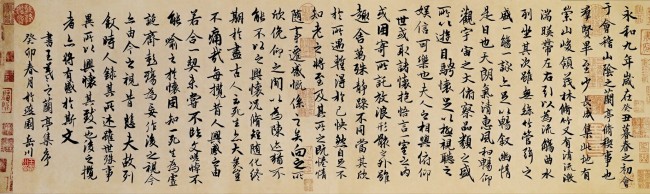 永和九年歲在癸丑暮春之初會
于會稽山陰之蘭亭修禊事也
群賢畢至少長咸集此地有
崇山峻領茂林脩竹又有清流激
湍暎帶左右引以為流觴曲水
列坐其次雖無絲竹管絃之
盛一觴一詠亦足以暢敘幽情
是日也天朗氣清惠風和暢仰
觀宇宙之大俯察品類之盛
所以遊目騁懷足以極視聽之
娛信可樂也夫人之相與俯仰
一世或取諸懷抱悟言一室之內
或因寄所託放浪形骸之外雖
趣舍萬殊靜躁不同當其欣
於所遇暫得於己快然自足不
知老之將至及其所之既惓情
隨事遷感慨係之矣向之所
欣俛仰之間以為陳迹猶不
能不以之興懷況脩短隨化終
期於盡古人云死生亦大矣豈
不痛哉每攬昔人興感之由
若合一契未嘗不臨文嗟悼不
能喻之於懷固知一死生為虛
誕齊彭殤為妄作後之視今
亦由今之視昔悲夫故列
敘時人錄其所述雖世殊事
異所以興懷其致一也後之攬
者亦將有感於斯文
書王羲之蘭亭集序
癸卯春月於燕園岳川